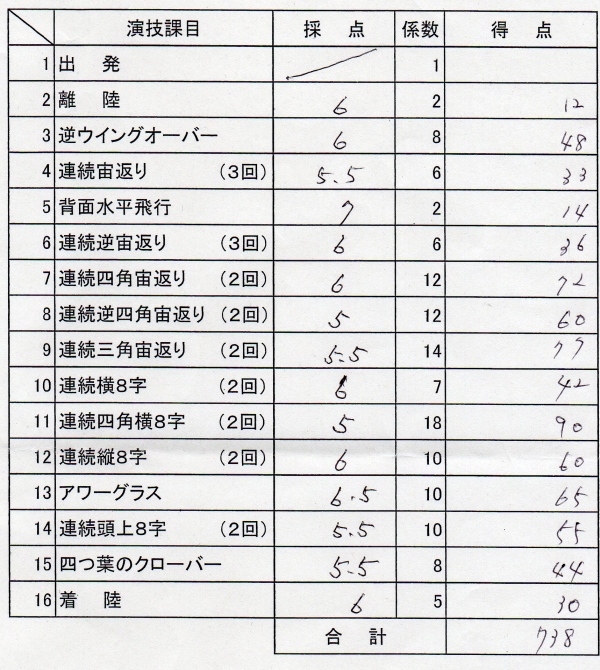 演技課目 採点 係数 得点
1 出発 1
2 離陸 6 2 12
3 逆ウイングオーバー 6 8 48
4 連続宙返り (3回) 5.5 6 33
5 背面水平飛行 7 2 14
6 連続逆宙返り (3回) 6 6 36
7 連続四角宙返り (2回) 6 12 72
8 連続逆四角宙返り (2回) 5 12 60
9 連続三角宙返り (2回) 5.5 14 77
10 連続横8字 (2回) 6 7 42
11 連続四角横8字 (2回) 5 18 90
12 連続縦8字 (2回) 6 10 60
13 アワーグラス 6.5 10 65
14 連続頭上8字 (2回) 5.5 10 55
15 四つ葉のクローバー 5.5 8 44
16 着陸 6 5 30
合計 738